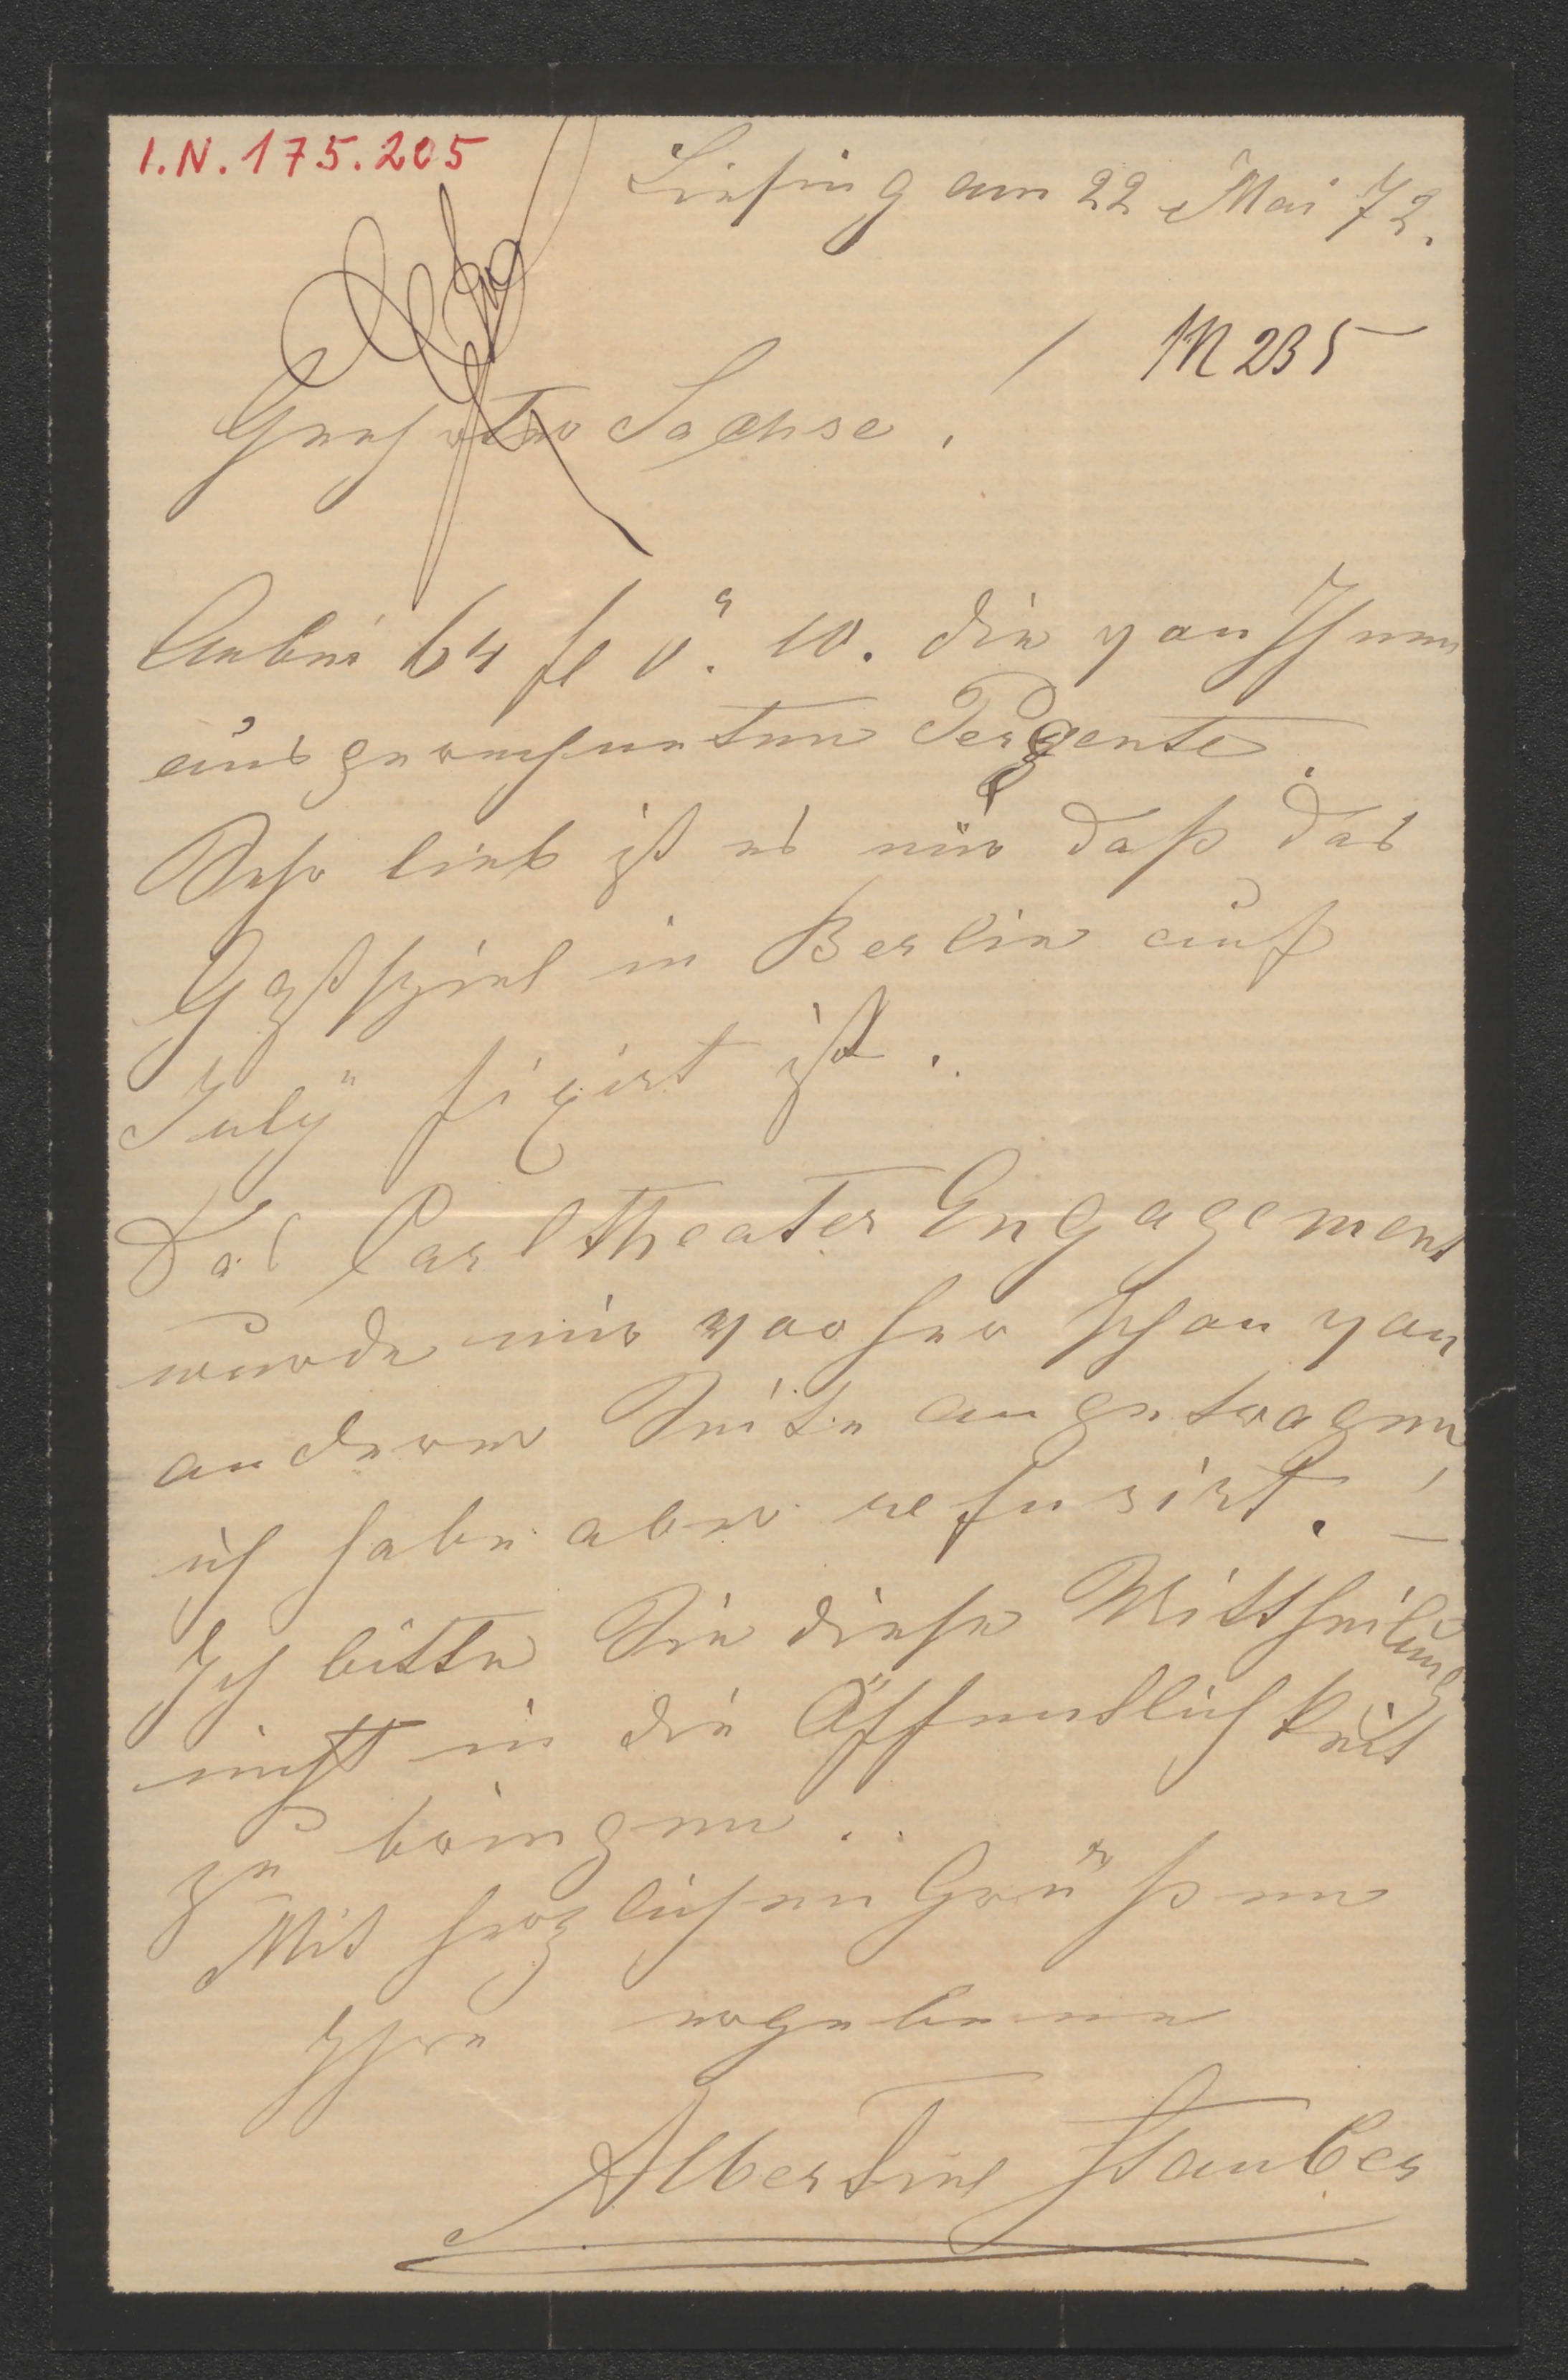 I.N. 175.205
Liesing am 22 Mai 72.
/ M 235
Geehrter Sachse.
Anbei 64 fl ö. W. die von Ihnen
ausgerechneten Perzente.
Sehr lieb ist es mir daß das
Gastspiel in Berlin auf
July fixirt ist.
Das Carltheater Engagement
wurde mir vorher schon von
anderer Seite angetragen,
ich habe aber refusirt. –
Ich bitte Sie diese Mittheilung
nicht in die Öffentlichkeit
zu bringen..
Mit herzlichen Grüßen
Ihre ergebene
Albertine Stauber